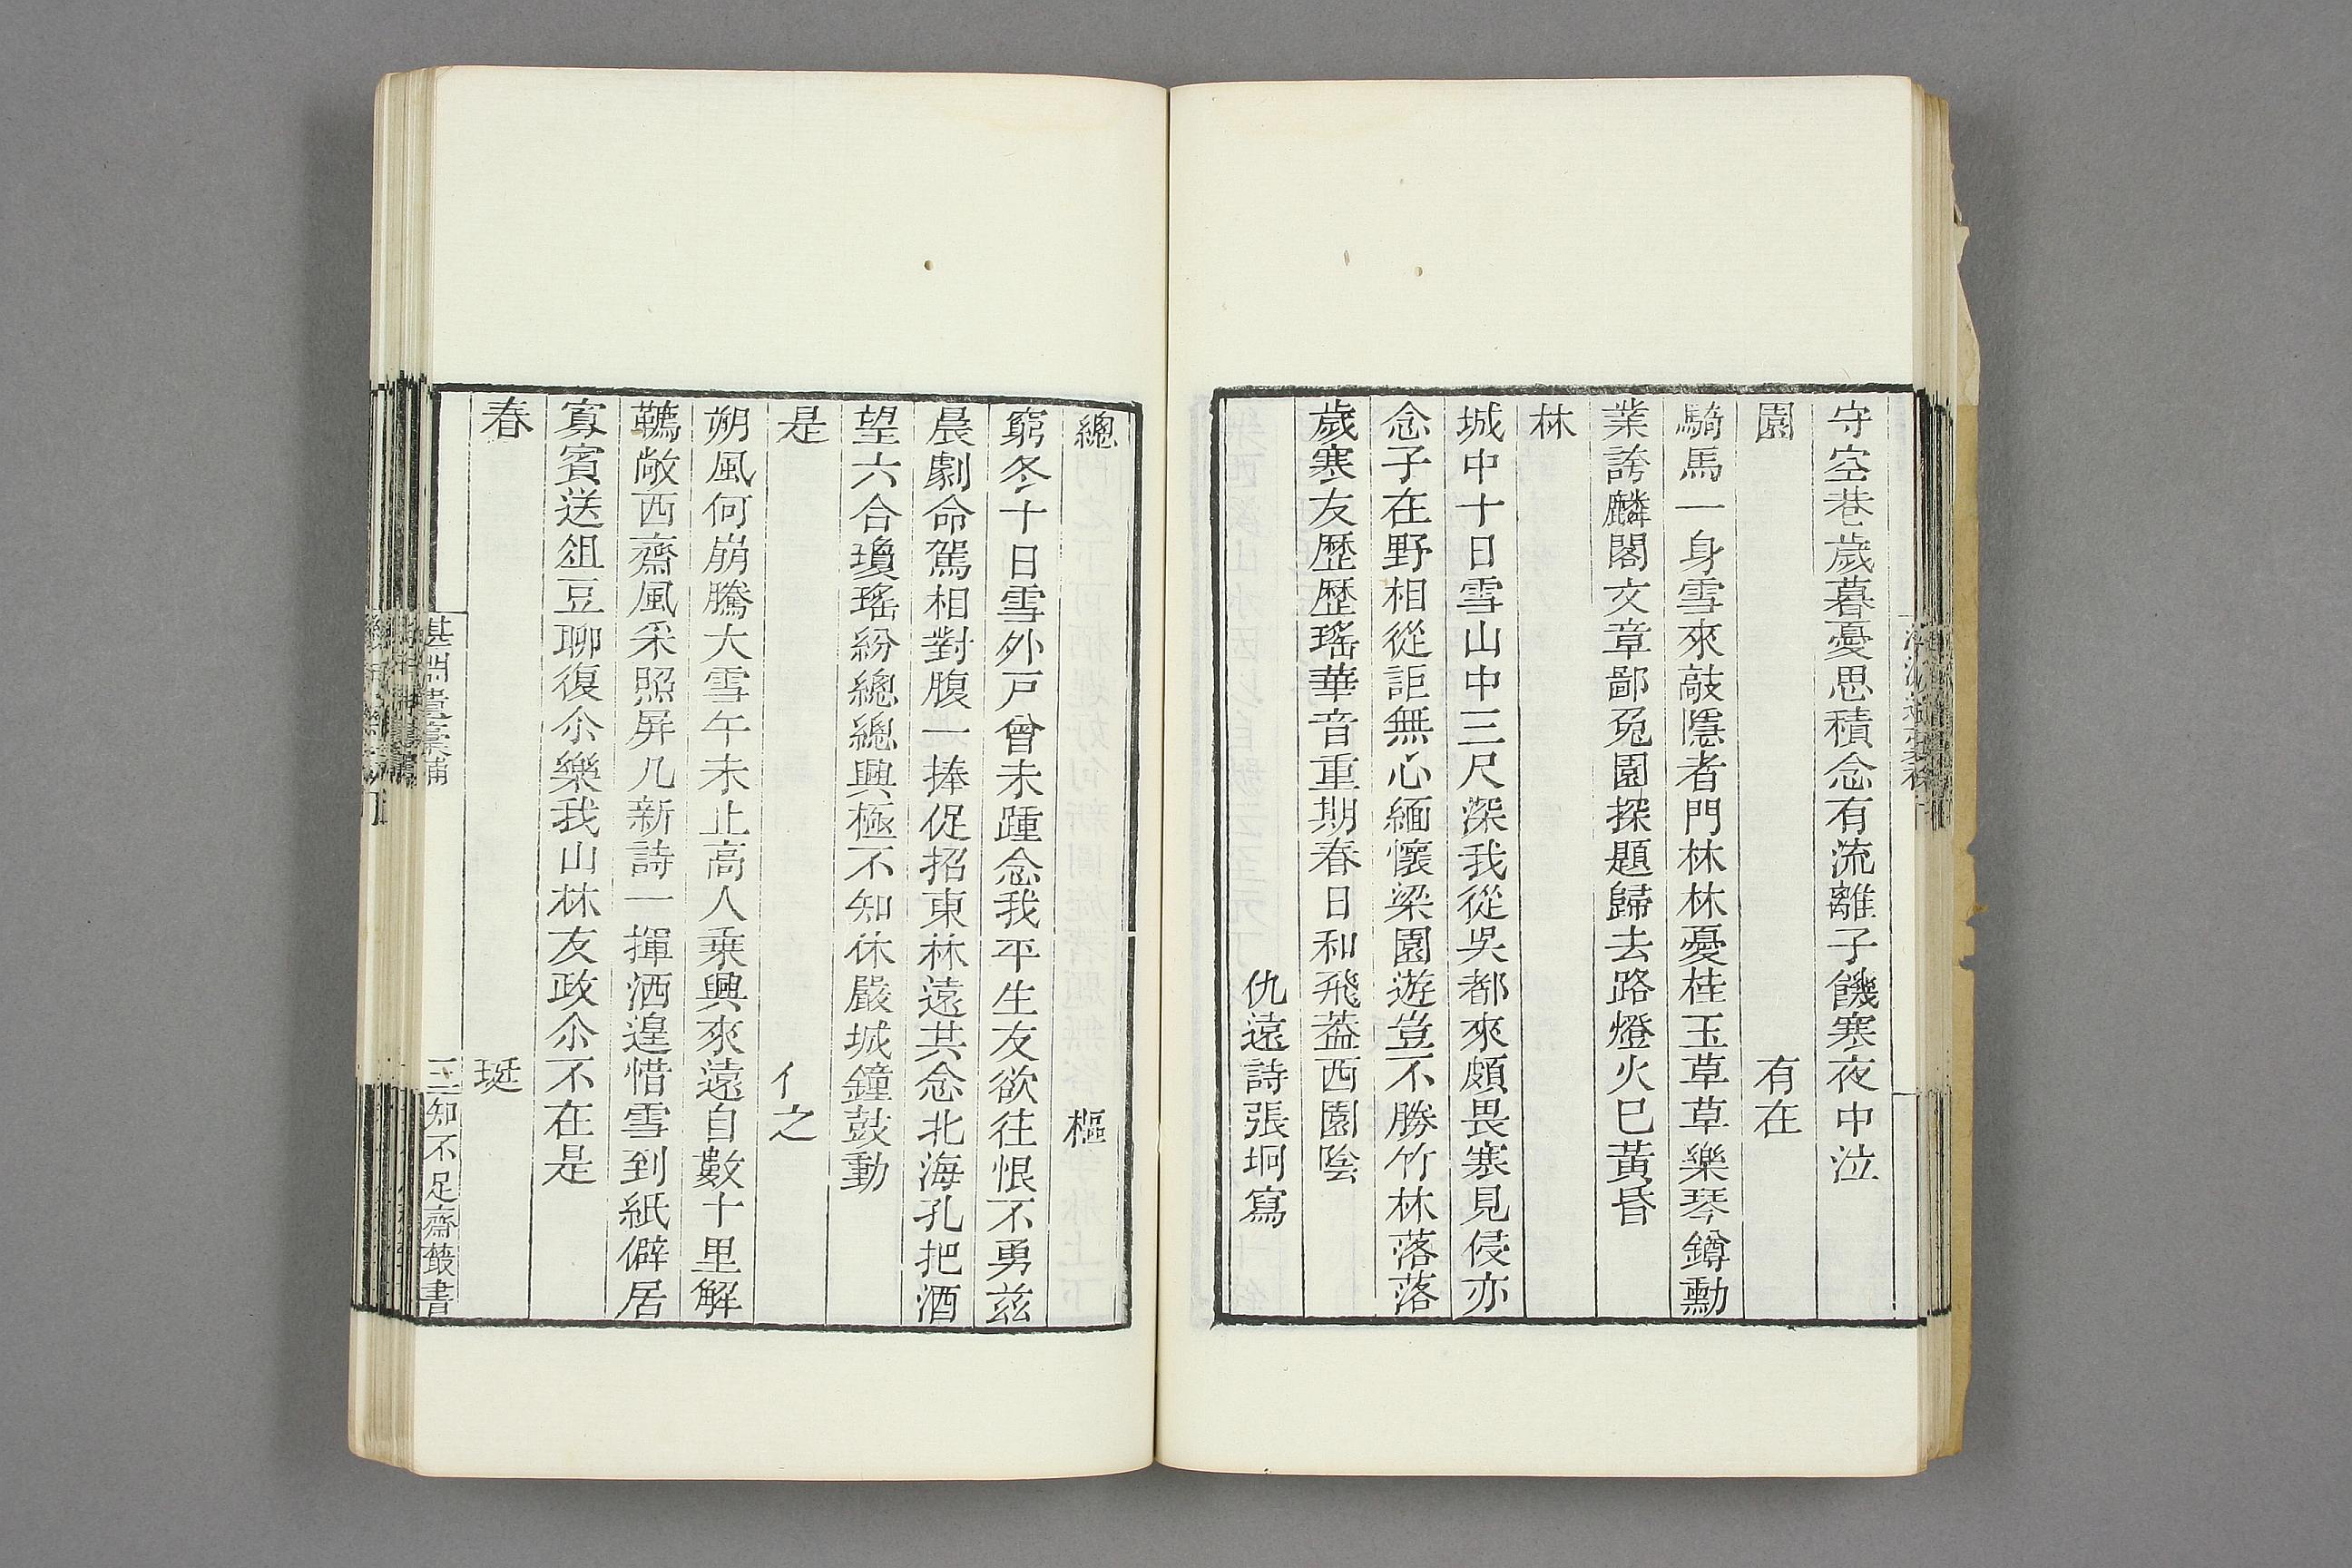 守空巷歲暮憂思積念有流離子饑寒夜中泣
園　有在
騎馬一身雪來敲隱者門林林憂桂玉草草樂琴鐏勳
業誇麟閣文章鄙兔園探題歸去路燈火巳黃昏
林
城中十日雪山中三尺深我從吳都來頗畏寒見侵亦
念子在野相從詎無心緬懷梁園遊豈不勝竹林落落
歲寒友歷歷瑤華音重期春日和飛葢西園陰
仇遠詩張坰寫
總　樞
窮冬十日雪外戸曾未踵念我平生友欲往恨不勇兹
晨劇命駕相對腹一捧促招東林遠共念北海孔把酒
望六合瓊瑤紛總總興極不知休嚴城鐘鼓動
是　亻之
朔風何崩騰大雪午未止高人乗興來遠自數十里解
鞿敞西齋風采照屏几新詩一揮洒遑惜雪到紙僻居
寡賓送俎豆聊復尒樂我山林友政尒不在是
春　珽
湛淵遺稾補　三　知不足齋叢書